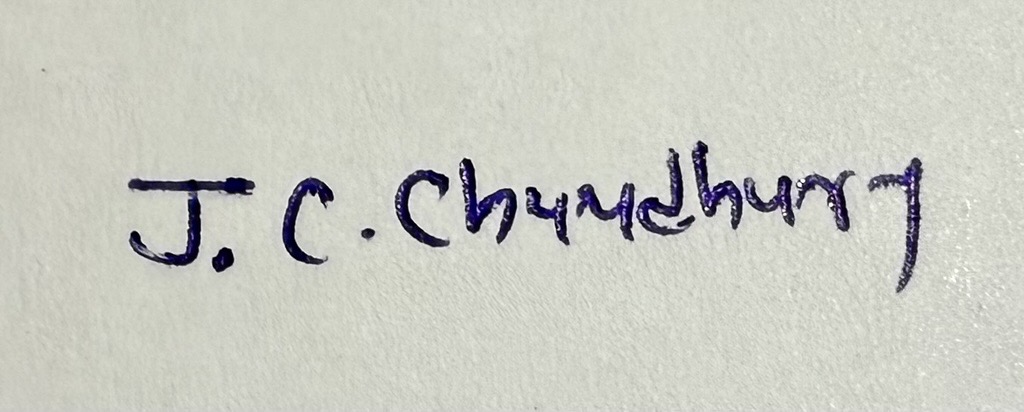 J. C. Chuudhury